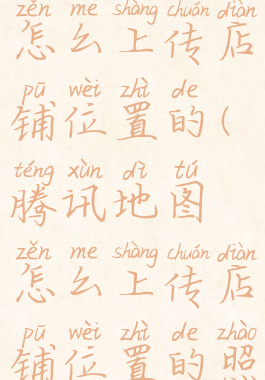 zěn me shàng chuán diàn
怎么上传店
pū wèi zhì de
铺位置的(
téng xùn dì tú
腾讯地图
zěn me shàng chuán diàn
怎么上传店
pū wèi zhì de zhào
铺位置的照